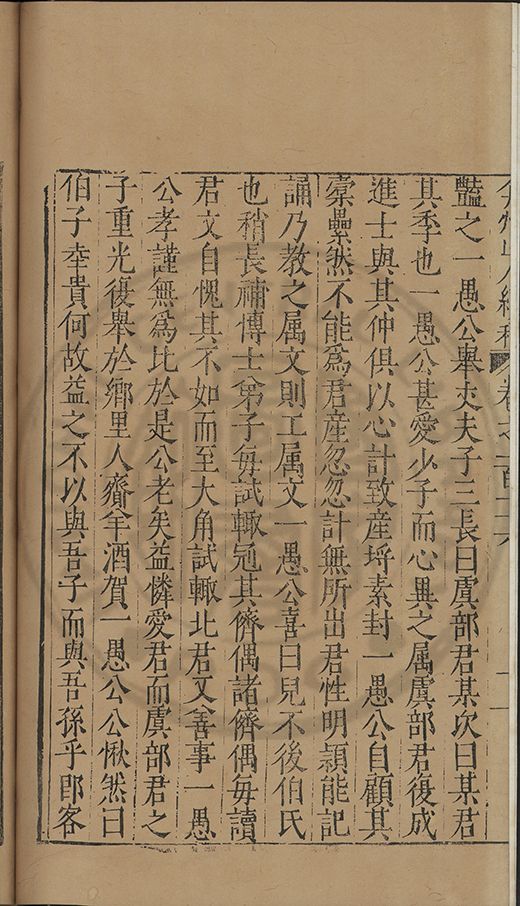 弇州山人續稿卷之
豔之一愚公舉丈夫子三長曰虞部君某次曰某君
其季也一愚公甚愛少子而心異之属虞部君復成
進士與其仲俱以心計致産埒素封一愚公自顧其
橐纍然不能爲君産忽忽計無所出君性明頴能記
誦乃教之属文則工属文一愚公喜曰兒不後伯氏
也稍長補博士弟子每試輙冠其儕偶諸儕偶每讀
君文自愧其不如而至大角試輙北君又善事一愚
公孝謹無爲比於是公老矣益憐愛君而虞部君之
子重光復舉於鄉里人齎羊酒賀一愚公公愀然曰
伯子幸貴何故益之不以與吾子而與吾孫乎即客